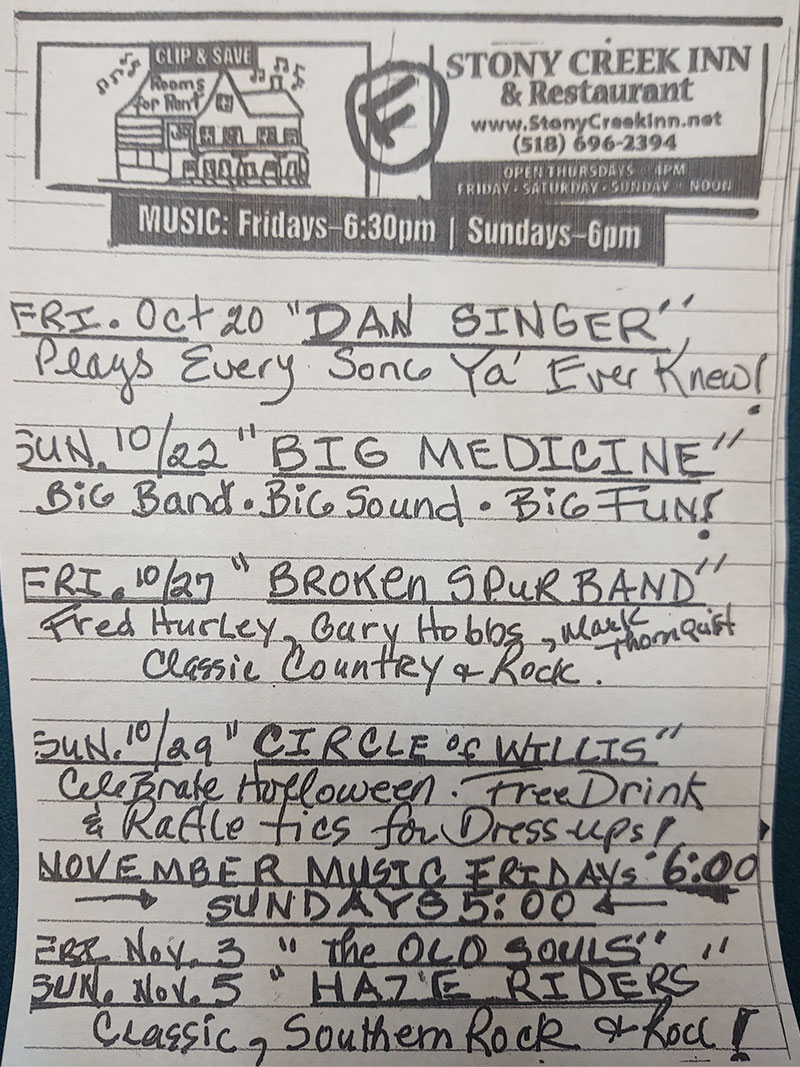 CLIP & SAVE
Rooms
for Rent
E
STONY CREEK INN
& Restaurant
www.StonyCreekInn.net
(518) 696-2394
OPEN THURSDAYS - 4PM
FRIDAY - SATURDAY - SUNDAY - NOON
MUSIC: Fridays–6:30pm | Sundays–6pm
FRI. Oct 20 "DAN SINGER"
Plays Every Song Ya' Ever Knew!
SUN. 10/22 "BIG MEDICINE"
BiG Band • BiG Sound • BiG FUN!
FRI. 10/27 "BROKen SPUR BAND"
Fred Hurley, Gary Hobbs, Mark Thornquist
Classic Country & Rock.
SUN. 10/29 "CIRCLE of WILLIS"
CeleBrate Holloween. Free Drink
& Raffle tics for Dress-ups!
NOVEMBER MUSIC FRIDAYs 6:00
→ SUNDAYS 5:00 ←
FRI Nov. 3 "The OLD SOULS"
SUN. Nov. 5 "HAZ'E RIDERS"
Classic, Southern Rock & Rocc!